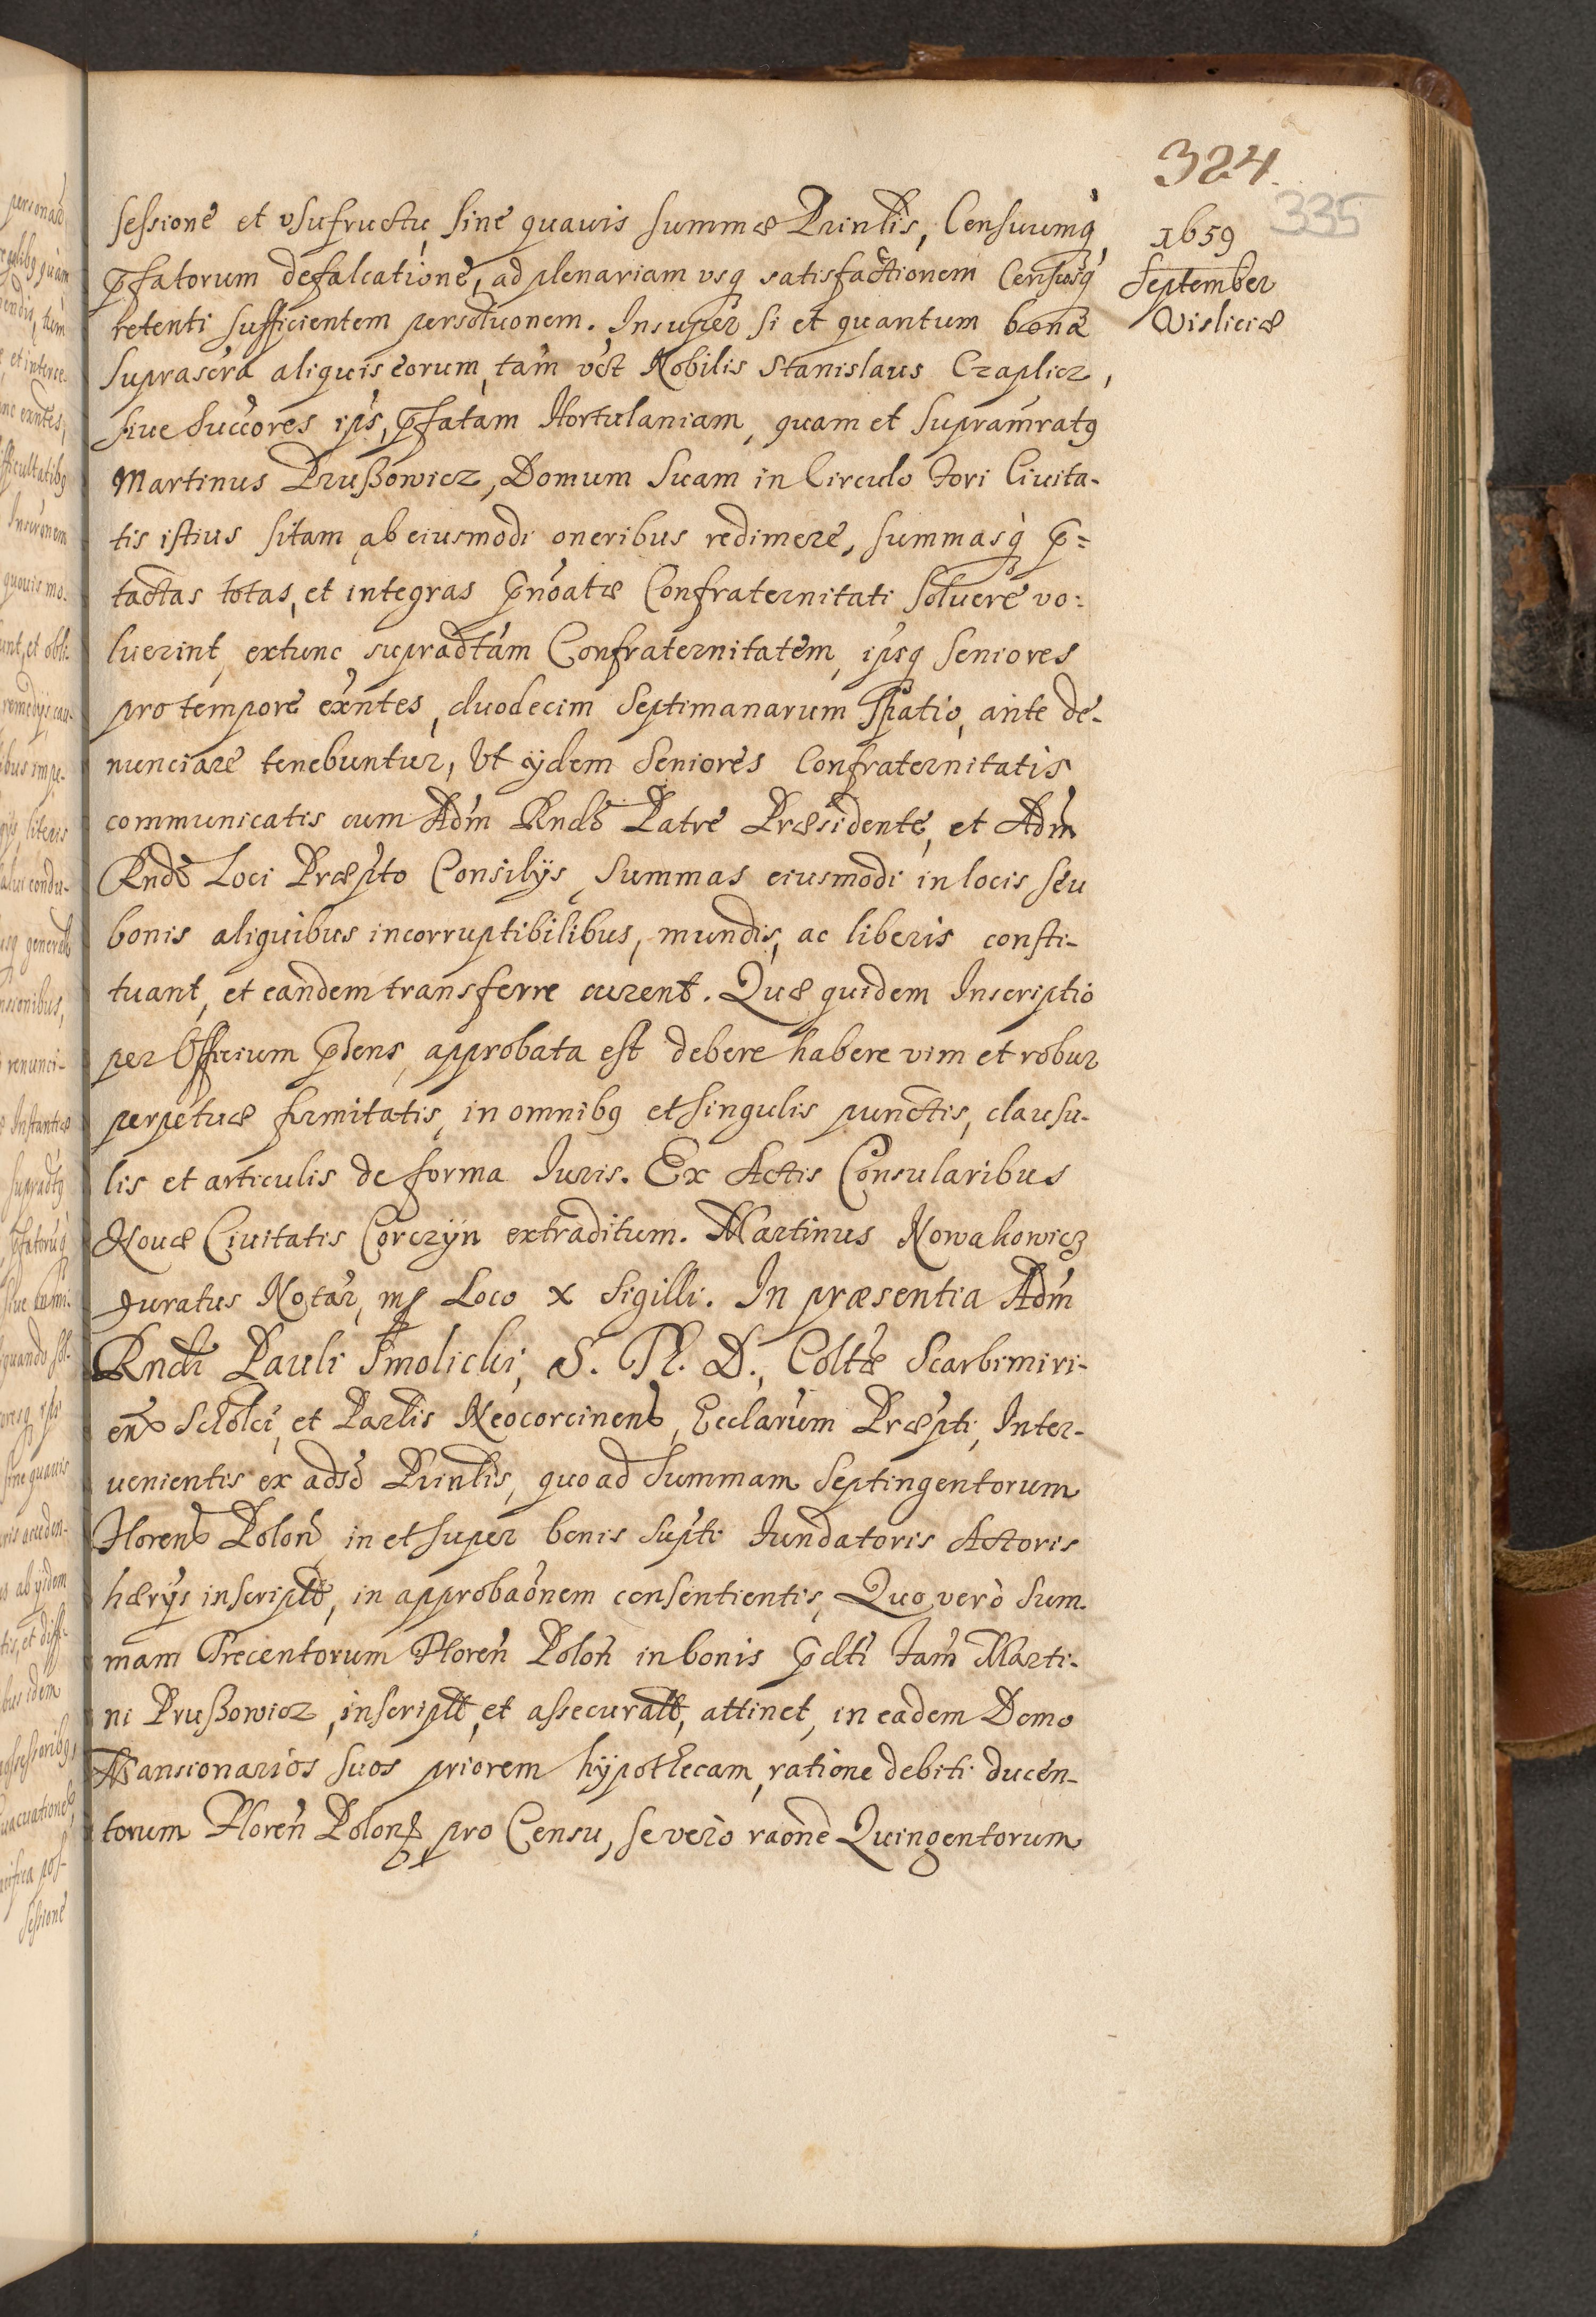 324.
335
1659
September
Visliciæ
sessione et usufructu, sine quavis summæ Prinlis, Censuumq̀
p̄fatorum defalcatione, ad plenariam usq satisfactionem Censusq̀
retenti sufficientem persolutionem. Insuper si et quantum bona
suprascra aliquis eorum, tam vel Nobilis Stanislaus Czaplicz,
siue Succores ips, p̄fatam Hortulaniam, quam et supramratq
Martinus Prußowicz, Domum Suam in Circulo Fori Ciuita-
tis istius sitam, ab eiusmodi oneribus redimere, summasq̀ p̄=
tactas totas, et integras p̄noatæ Confraternitati soluere vo:
luerint, extunc supradtam Confraternitatem, ipsq Seniores
pro tempore exntes, duodecim Septimanarum Spatio, ante de-
nunciare tenebuntur, Ut ijdem Seniores Confraternitatis
communicatis cum Adm Rndo Patre Præsidente, et Adm
Rndo Loci Præpto Consilijs, Summas eiusmodi in locis seu
bonis aliquibus incorruptibilibus, mundis, ac liberis consti-
tuant, et eandem transferre curent. Quæ quidem Inscriptio
per Officium p̄sens, approbata est debere habere vim et robur
perpetuæ firmitatis, in omnibq et singulis punctis, clausu-
lis et articulis de forma Iuris. Ex Actis Consularibus
Nouæ Ciuitatis Corczÿn extraditum. Martinus Nowakowicz
Juratus Notar, mp Loco x Sigilli. In præsentia Adm
Rndi Pauli Smolicki, S. Th. D., Coltæ Scarbimiri-
en Scholci, et Parlis Neocorcinens, Ecclarum Præpti, Inter-
uenientis ex adso Prinlis, quo ad Summam Septingentorum
Floren Polon, in et super bonis supti Fundatoris Actoris
hærijs inscript, in approbaonem consentientis, Quo verò Sum-
mam Trecentorum Floreñ Poloñ in bonis p̄dti Fam Marti-
ni Prußowicz, inscript, et assecurat, attinet, in eadem Domo
Mansionarios suos priorem hÿpothecam, ratione debiti ducen-
torum Floreñ Polon pro Censu, se verò raone Quingentorum